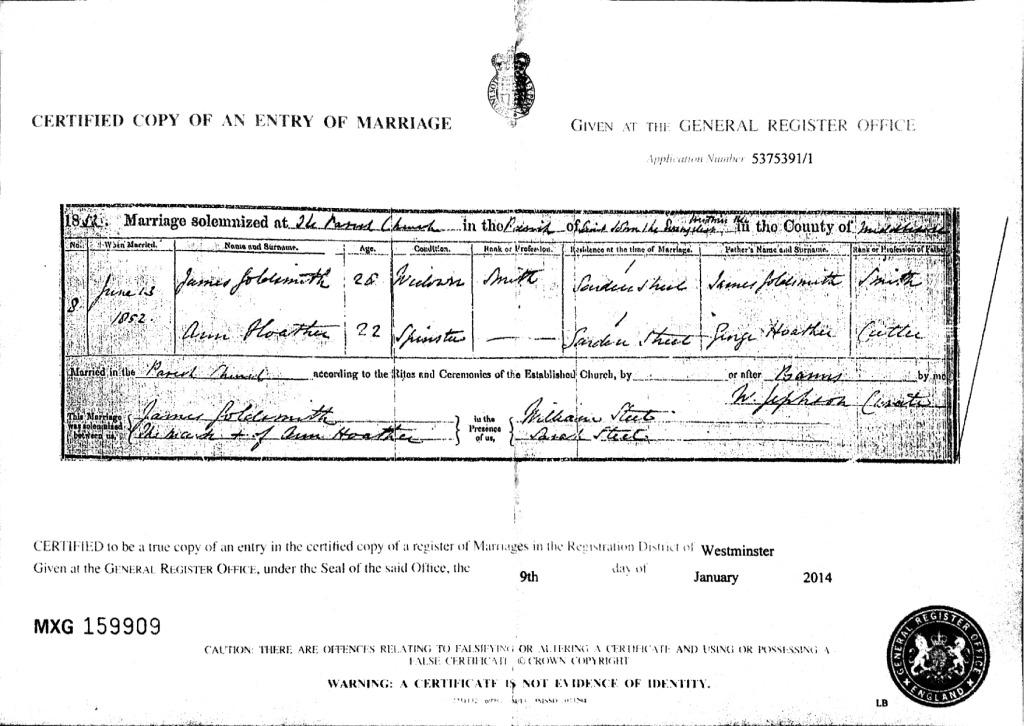 CERTIFIED COPY OF AN ENTRY OF MARRIAGE
GIVEN AT THE GENERAL REGISTER OFFICE
Application Number 5375391/1
1852. Marriage solemnized at The Parish Church in the Parish of Saint John the Evangelist within the in the County of Middlesex
No. When Married. Name and Surname. Age. Condition. Rank or Profession. Residence at the time of Marriage. Father's Name and Surname. Rank or Profession of Father
8 June 13 1852. James Goldsmith 28 Widower Smith Garden Street James Goldsmith Smith
Ann Hoather 22 Spinster — Garden Street George Hoather Cutler
Married in the Parish Church according to the Rites and Ceremonies of the Established Church, by or after Banns by me
W. Jephson Curate
This Marriage was solemnized between us, James Goldsmith in the Presence of us, William Steet
The mark + of Ann Hoather Sarah Steet
CERTIFIED to be a true copy of an entry in the certified copy of a register of Marriages in the Registration District of Westminster
Given at the GENERAL REGISTER OFFICE, under the Seal of the said Office, the 9th day of January 2014
MXG 159909
CAUTION: THERE ARE OFFENCES RELATING TO FALSIFYING OR ALTERING A CERTIFICATE AND USING OR POSSESSING A
FALSE CERTIFICATE © CROWN COPYRIGHT
WARNING: A CERTIFICATE IS NOT EVIDENCE OF IDENTITY.
GENERAL REGISTER OFFICE
ENGLAND
LB